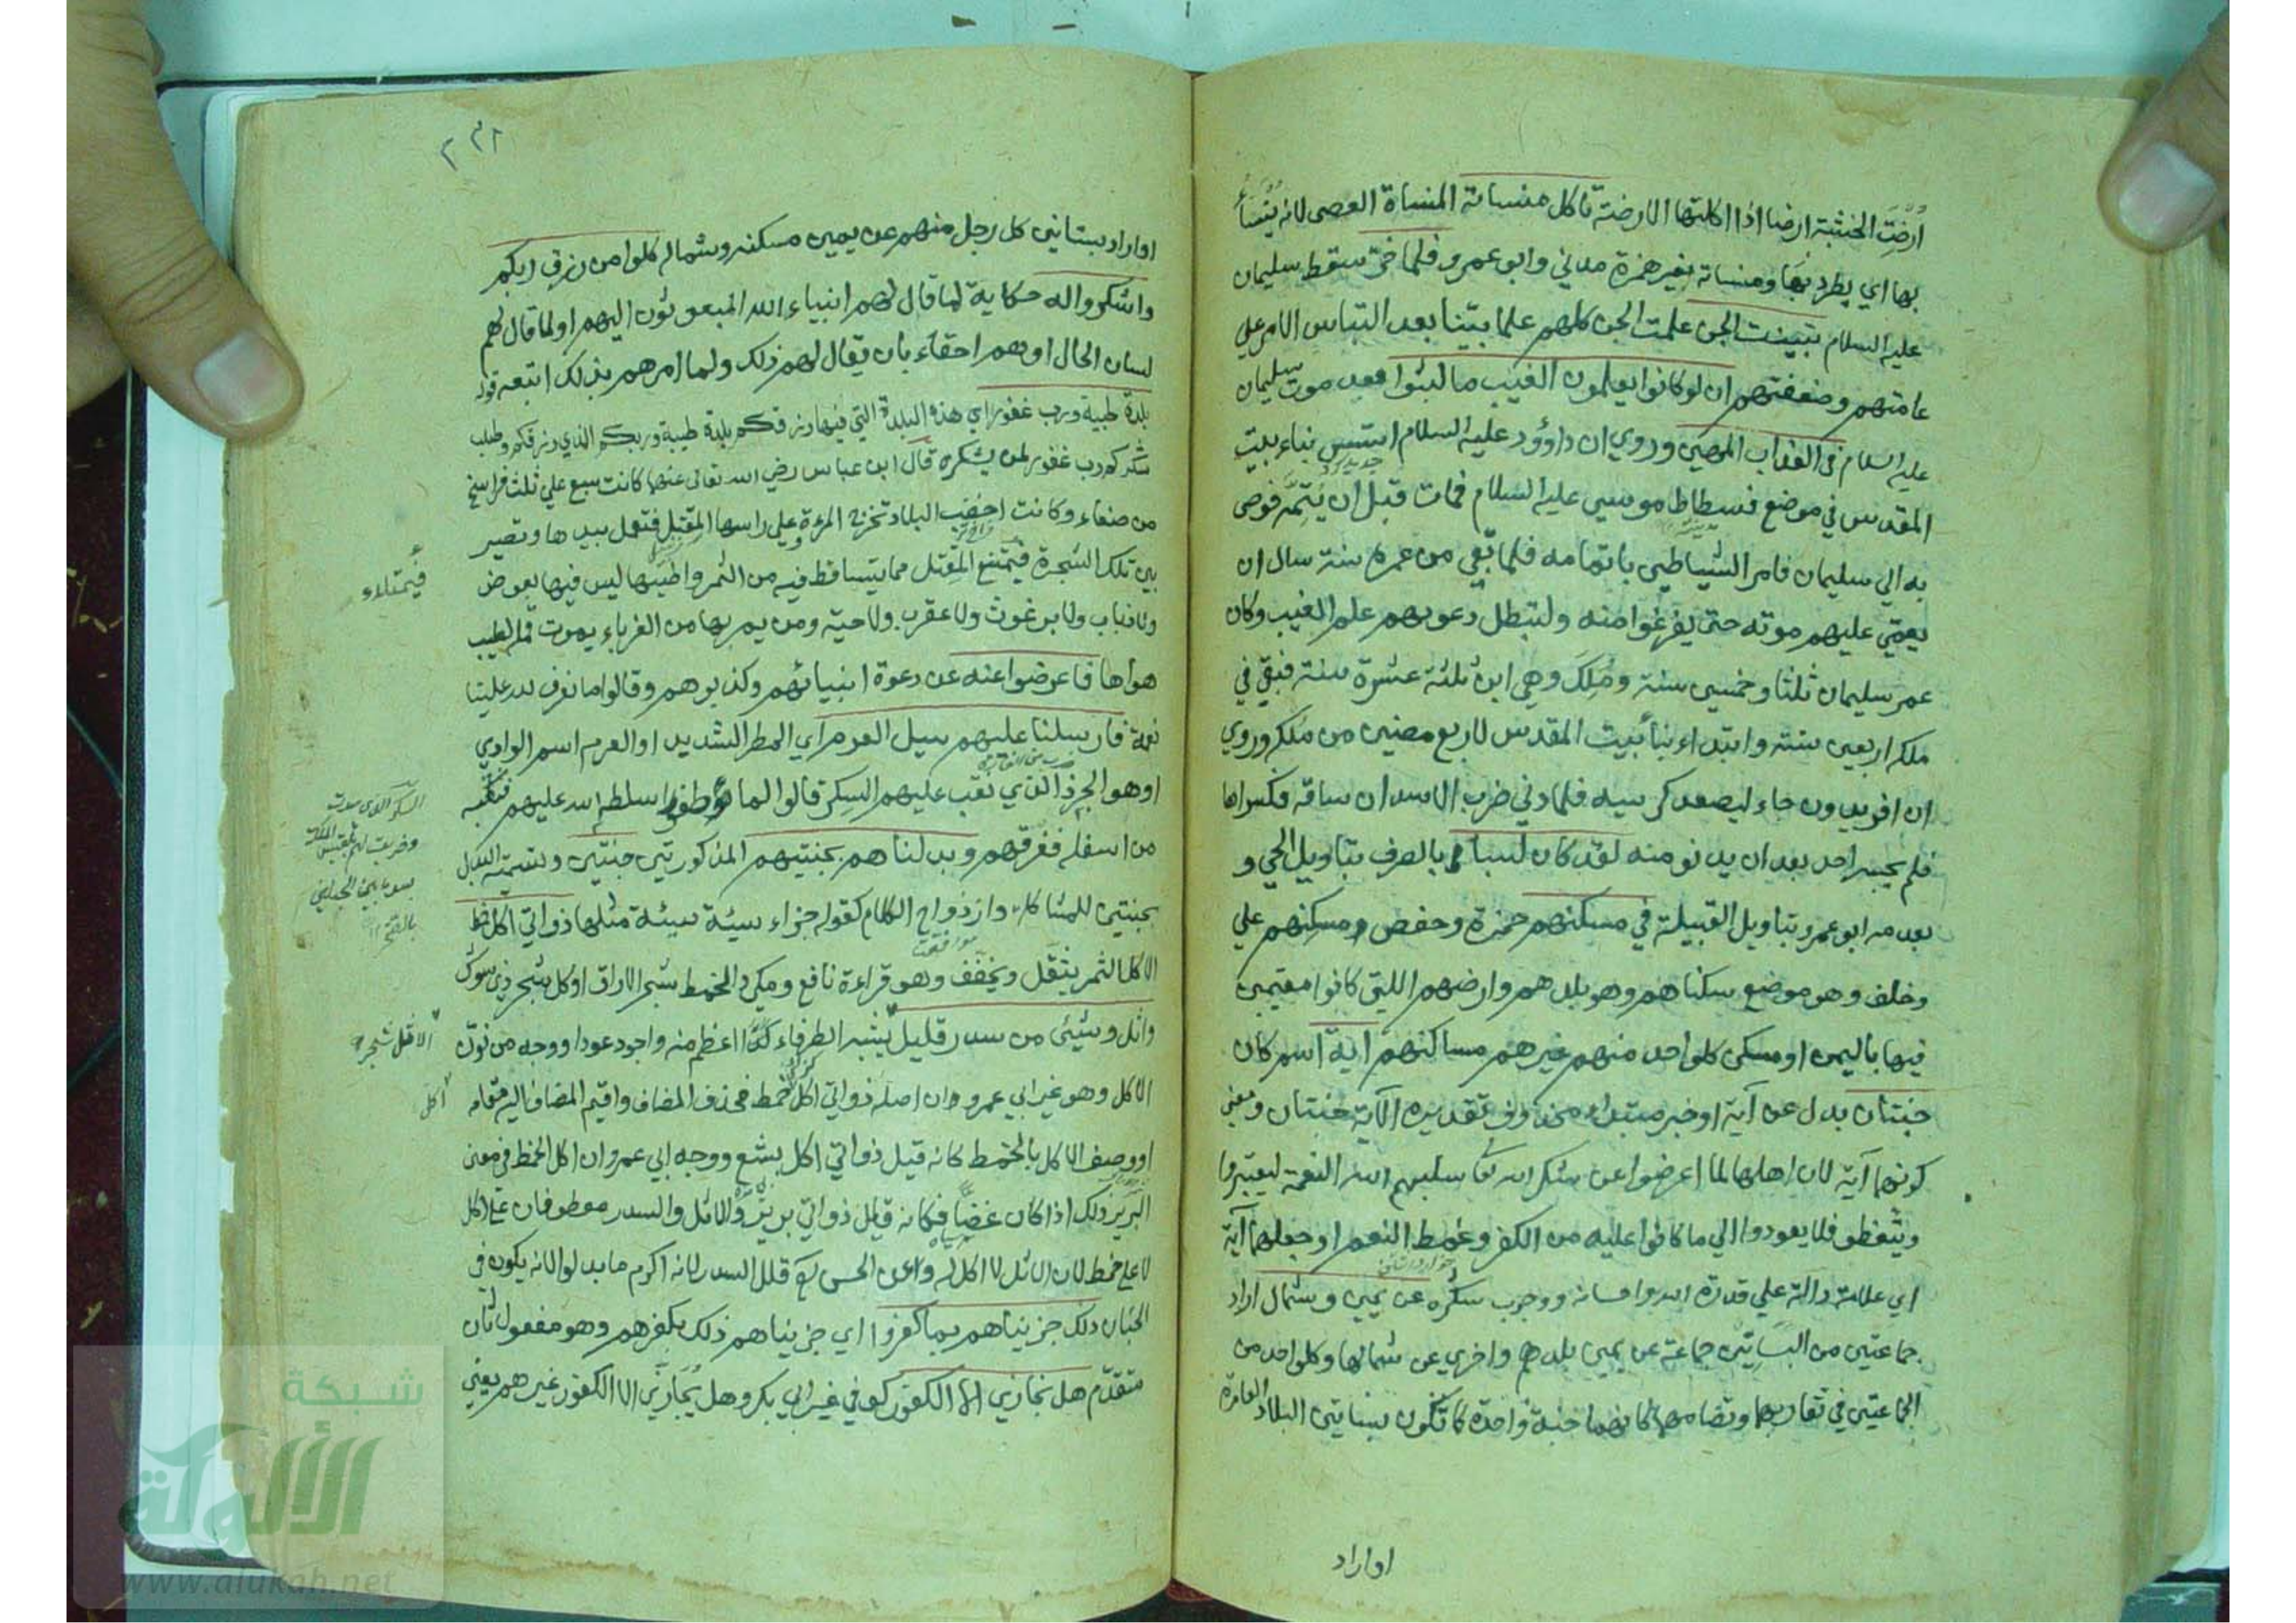 أُرِضَتِ الخشبة ارضا اذا اكلتها الارضة تاكل منساته المنساة العصى لانه يُنْسَأُ
بها اي يطرد بها ومنساته بغير همزة مدني وابو عمرو فلما خر سقط سليمان
عليه السلام تبينت الجن علمت الجن كلهم علما بيّنا بعد التباس الامر علي
عامتهم وضعفتهم ان لو كانوا يعلمون الغيب ما لبثوا بعد موت سليمان
عليه السلام في العذاب المهين وروي ان داؤود عليه السلام اسّس بناء بيت
المقدس في موضع فسطاط موسي عليه السلام فمات قبل ان يُتِمَّه فوصى
به الي سليمان فامر الشياطين باتمامه فلما بقي من عمره سنة سال ان
يعمّي عليهم موته حتى يفرغوا منه ولتبطل دعويهم علم الغيب وكان
عمر سليمان ثلثا وخمسين سنة ومُلِكَ وهي ابن ثلثة عشرة سنة فبقي في
ملكه اربعين سنة وابتداء بناء بيت المقدس لاربع مضين من ملكه وروي
ان افريدون جاء ليصعد كرسيه فلما دني ضرب الاسدان ساقه فكسراها
فلم يجسر احد بعد ان يدنو منه لقد كان لسبا بالصرف بتاويل الحي و
بعدمه ابو عمرو بتاويل القبيلة في مسكنهم حمزة وحفص ومسكِنهم علي
وخلف وهو موضع سكناهم وهو بلدهم وارضهم اللتي كانوا مقيمين
فيها باليمن او مسكن كلواحد منهم غيرهم مساكنهم اية اسم كان
جنتان بدل عن آية او خبر مبتداء محذوف تقديره الآية جنتان ومعني
كونهما آية لان اهلها لما اعرضوا عن شكر الله تعا سلبهم الله النعمة ليعتبروا
ويتعظو فلا يعودوا الي ما كانوا عليه من الكفر وغمط النعم او جعلهما آية
اي علامة دالة علي قدرة الله واحسانه ووجوب شكره عن يمين وشمال اراد
جماعتين من البساتين جماعة عن يمين بلدهم واخري عن شمالها وكلواحد من
الجماعتين في تقاربها وتضامها كانهما جنة واحدة كما تكون بساتين البلاد العامرة
او اراد
٢٣١
او اراد بستاني كل رجل منهم عن يمين مسكنه وشماله كلوا من رزق ربكم
واشكروا له حكاية لما قال لهم انبياء الله المبعوثون اليهم او لما قال لهم
لسان الحال او هم احقاء بان يقال لهم ذلك ولما امرهم بذلك اتبعه قوله
بلدة طيبة ورب غفور اي هذه البلدة التي فيها رزقكم بلدة طيبة وربكم الذي رزقكم وطلب
شكركم رب غفور لمن يشكره قال ابن عباس رضي الله تعالى عنهما كانت سبع علي ثلث فراسخ
من صنعاء وكانت اخصب البلاد تخرج المرءة وعلي راسها المقتل فتعمل بيدها وتصير
بين تلك الشجرة فيمتنع المقتل مما يتساقط فيه من الثمر واطيبها ليس فيها بعوض
ولا ذباب ولا برغوث ولا عقرب ولا حية ومن يمر بها من الغرباء يموت قمله لطيب
هواها فاعرضوا عنه عن دعوة انبيائهم وكذبوهم وقالوا ما نعرف لله علينا
نعمة فارسلنا عليهم سيل العرم اي المطر الشديد او العرم اسم الوادي
او هو الجرذ الذي نقب عليهم السِكر قالوا لما طغوا سلطه الله عليهم فنقبه
من اسفله فغرقهم وبدلناهم بجنتيهم المذكورتين جنتين وتسمية البدل
بجنتين للمشاكلة وازدواج الكلام كقوله جزاء سيئة سيئة مثلها ذواتي اكل خمط
الاكل الثمر يثقل ويخفف وهو قراءة نافع ومكي والخمط شجر الاراك او كل شجر ذي شوك
واثل وشيئ من سدر قليل يشبه الطرفاء اعظم منه واجود عودا ووجه من نوّن
الاكل وهو غير ابي عمرو ان اصله ذواتي اكل خمط فحذف المضاف واقيم المضاف اليه مقامه
او وصف الاكل بالخمط كانه قيل ذواتي اكل بشع ووجه ابي عمرو ان اكل الخمط في معني
البَرِيْر ذلك اذا كان غضّا فكانه قيل ذواتي برير والاثل والسدر معطوفان علي اكل
لا علي خمط لان الاثل لا اكل له وعن الحسن قلل السدر لانه اكرم ما بدلوا لانه يكون في
الجنان ذلك جزيناهم بما كفروا اي جزيناهم ذلك بكفرهم وهو مفعول ثان
متقدّم هل نجازي الا الكفور كوفي غير ابي بكر وهل يُجازَي الا الكفور غيرهم يعني
فيمتلاء
بالفتح
الاثل شجر
اكل
شبكة
الألوكة
www.alukah.net